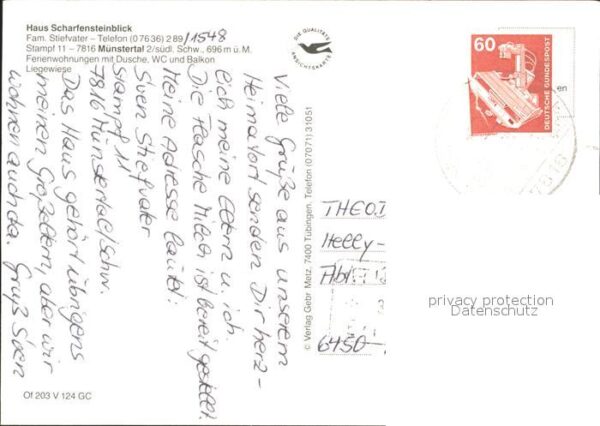 Haus Scharfensteinblick
Fam. Stiefvater – Telefon (0 76 36) 2 89 /1548
Stampf 11 – 7816 Münstertal 2/südl. Schw., 696 m ü. M.
Ferienwohnungen mit Dusche, WC und Balkon
Liegewiese
DIE QUALITÄTS
ANSICHTSKARTE
Viele Grüße aus unserem
Heimatort senden Dir herz-
lich meine Eltern u. ich.
Die Flasche Milch ist bereit gestellt.
Meine Adresse lautet:
Sven Stiefvater
Stampf 11
7816 Münstertal/Schw.
Das Haus gehört übrigens
meinen Großeltern, aber wir
wohnen auch da. Gruß Sven
Of 203 V 124 GC
© Verlag Gebr. Metz, 7400 Tübingen, Telefon (07071) 31051
60
DEUTSCHE BUNDESPOST
en
7816
THEO
Helly-
Abt.
6450
privacy protection
Datenschutz